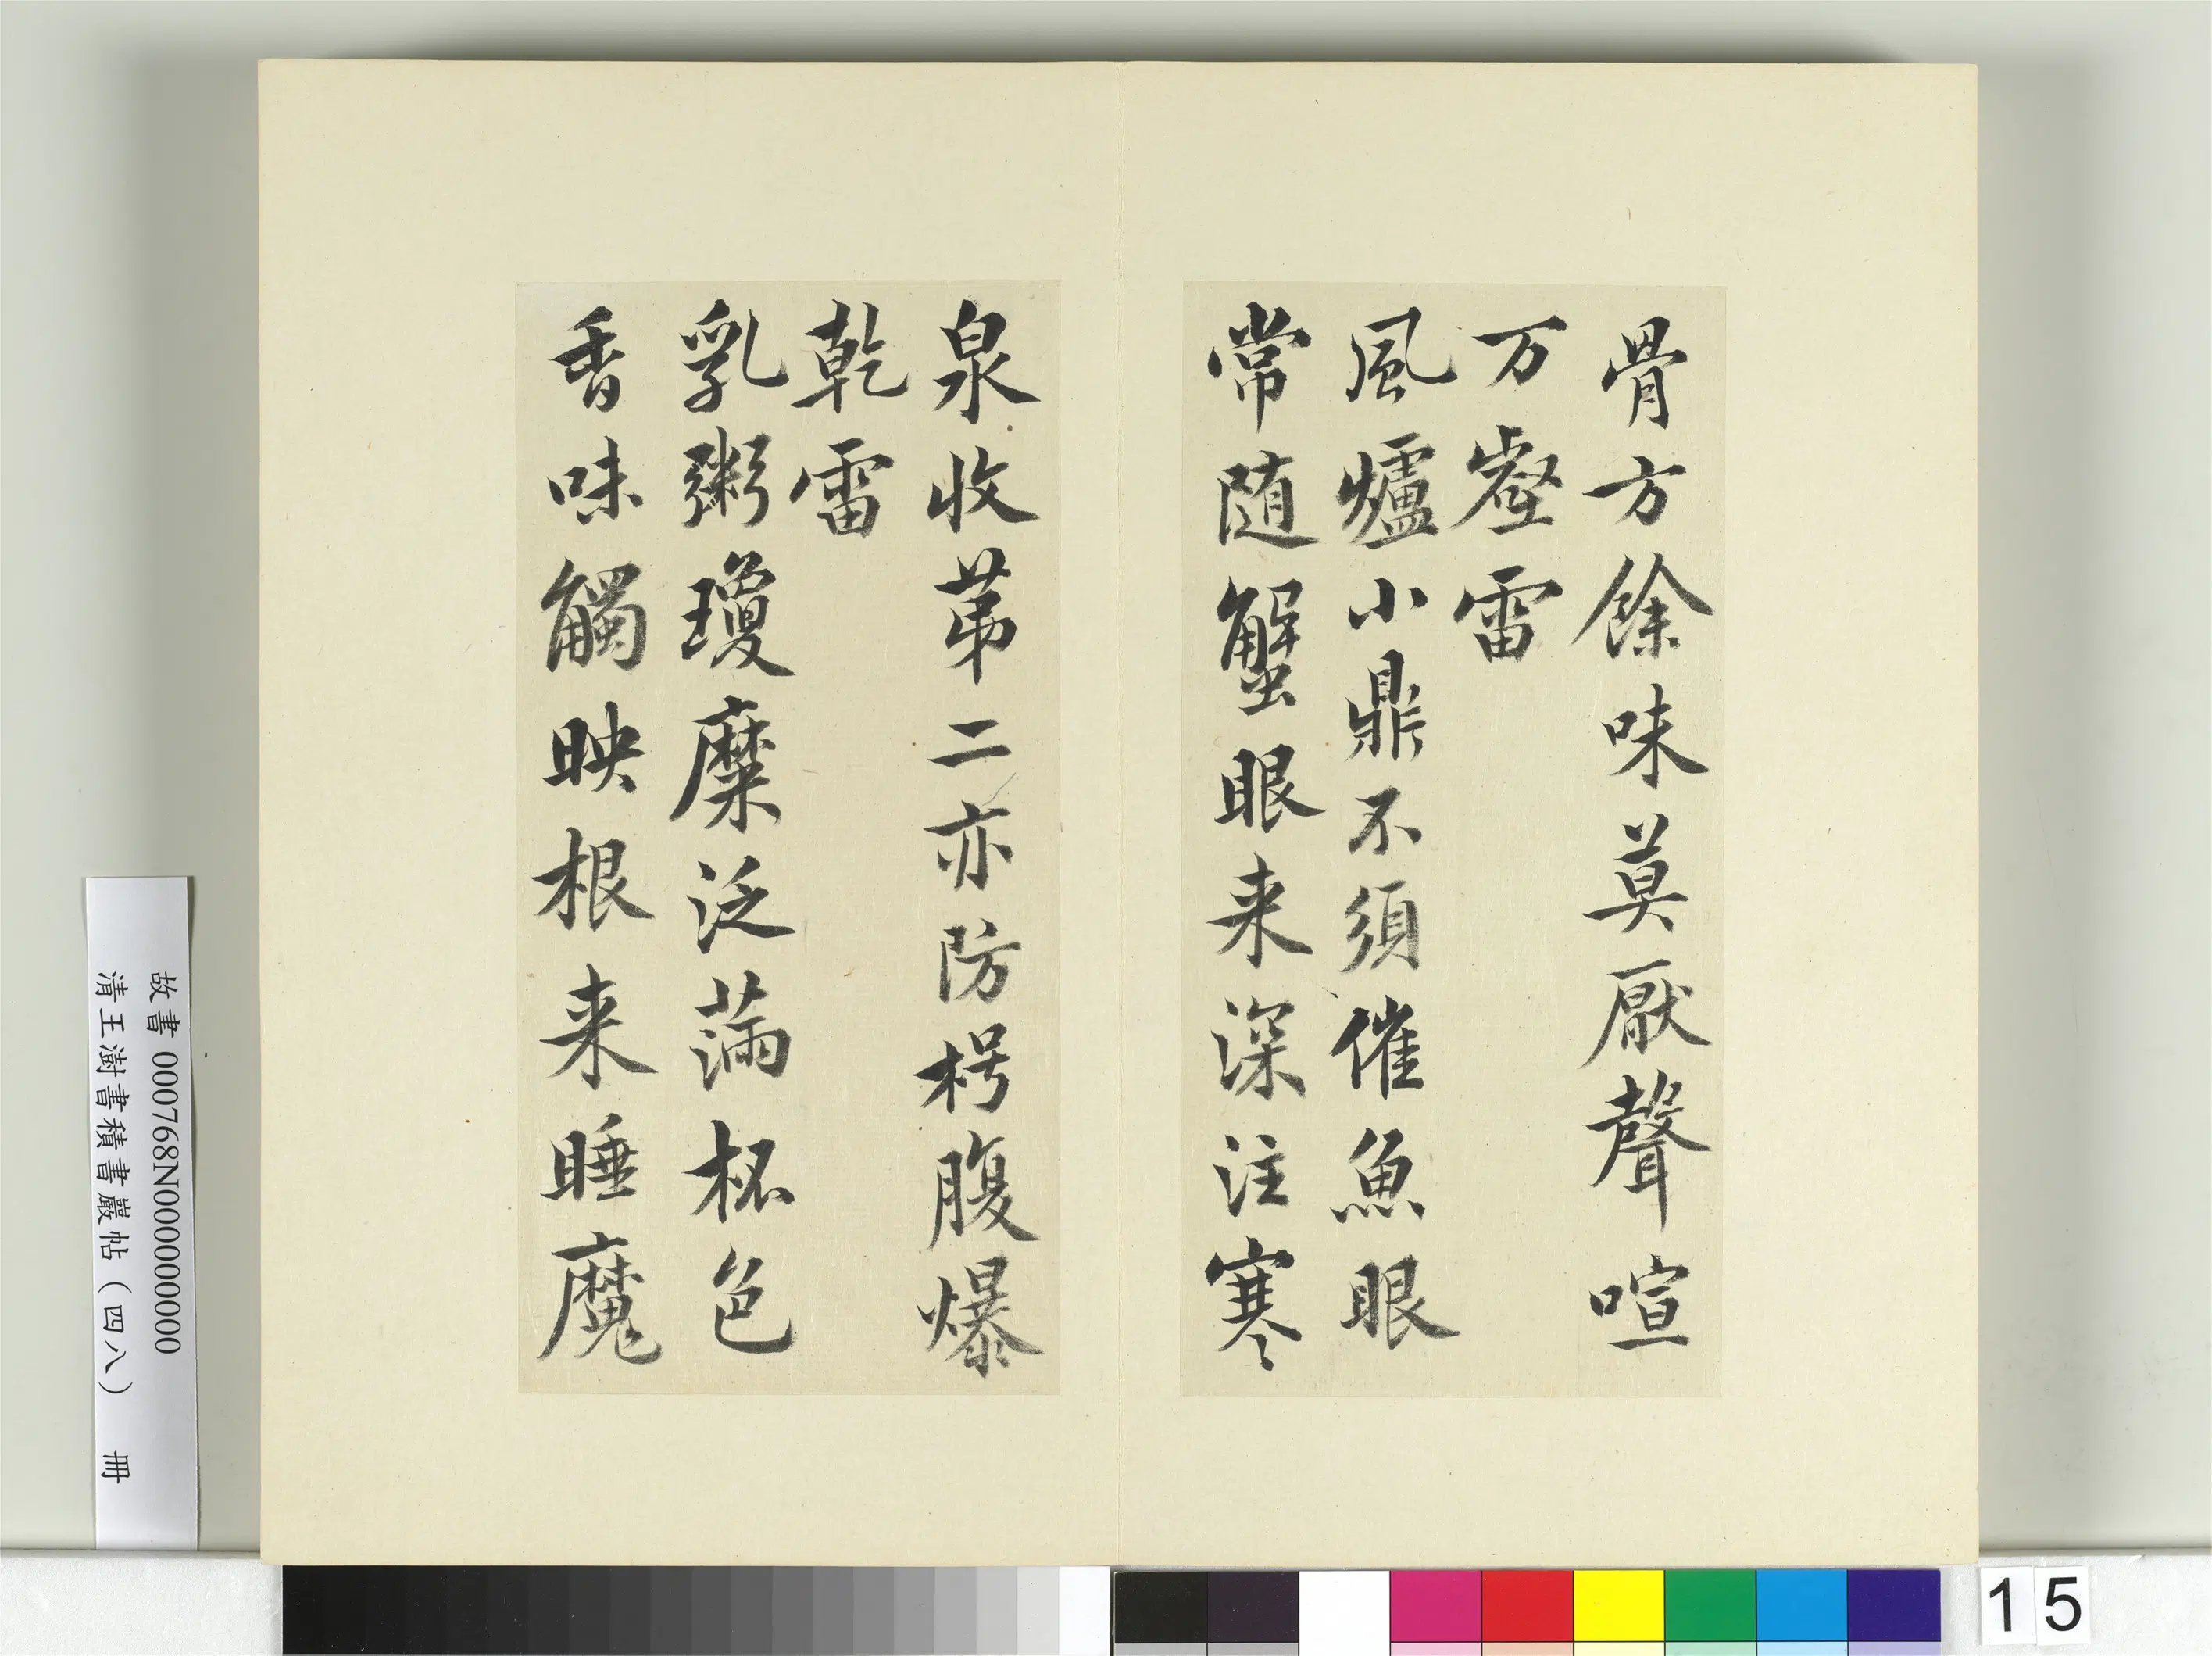 骨方餘味莫厭聲喧
万壑雷
風爐小鼎不須催魚眼
常随蟹眼来深注寒
泉收苐二亦防枵腹爆
乾雷
乳粥瓊糜泛满杯色
香味觸映根来睡魔
故書 000768N000000000
清王澍書積書巖帖（四八） 冊
15